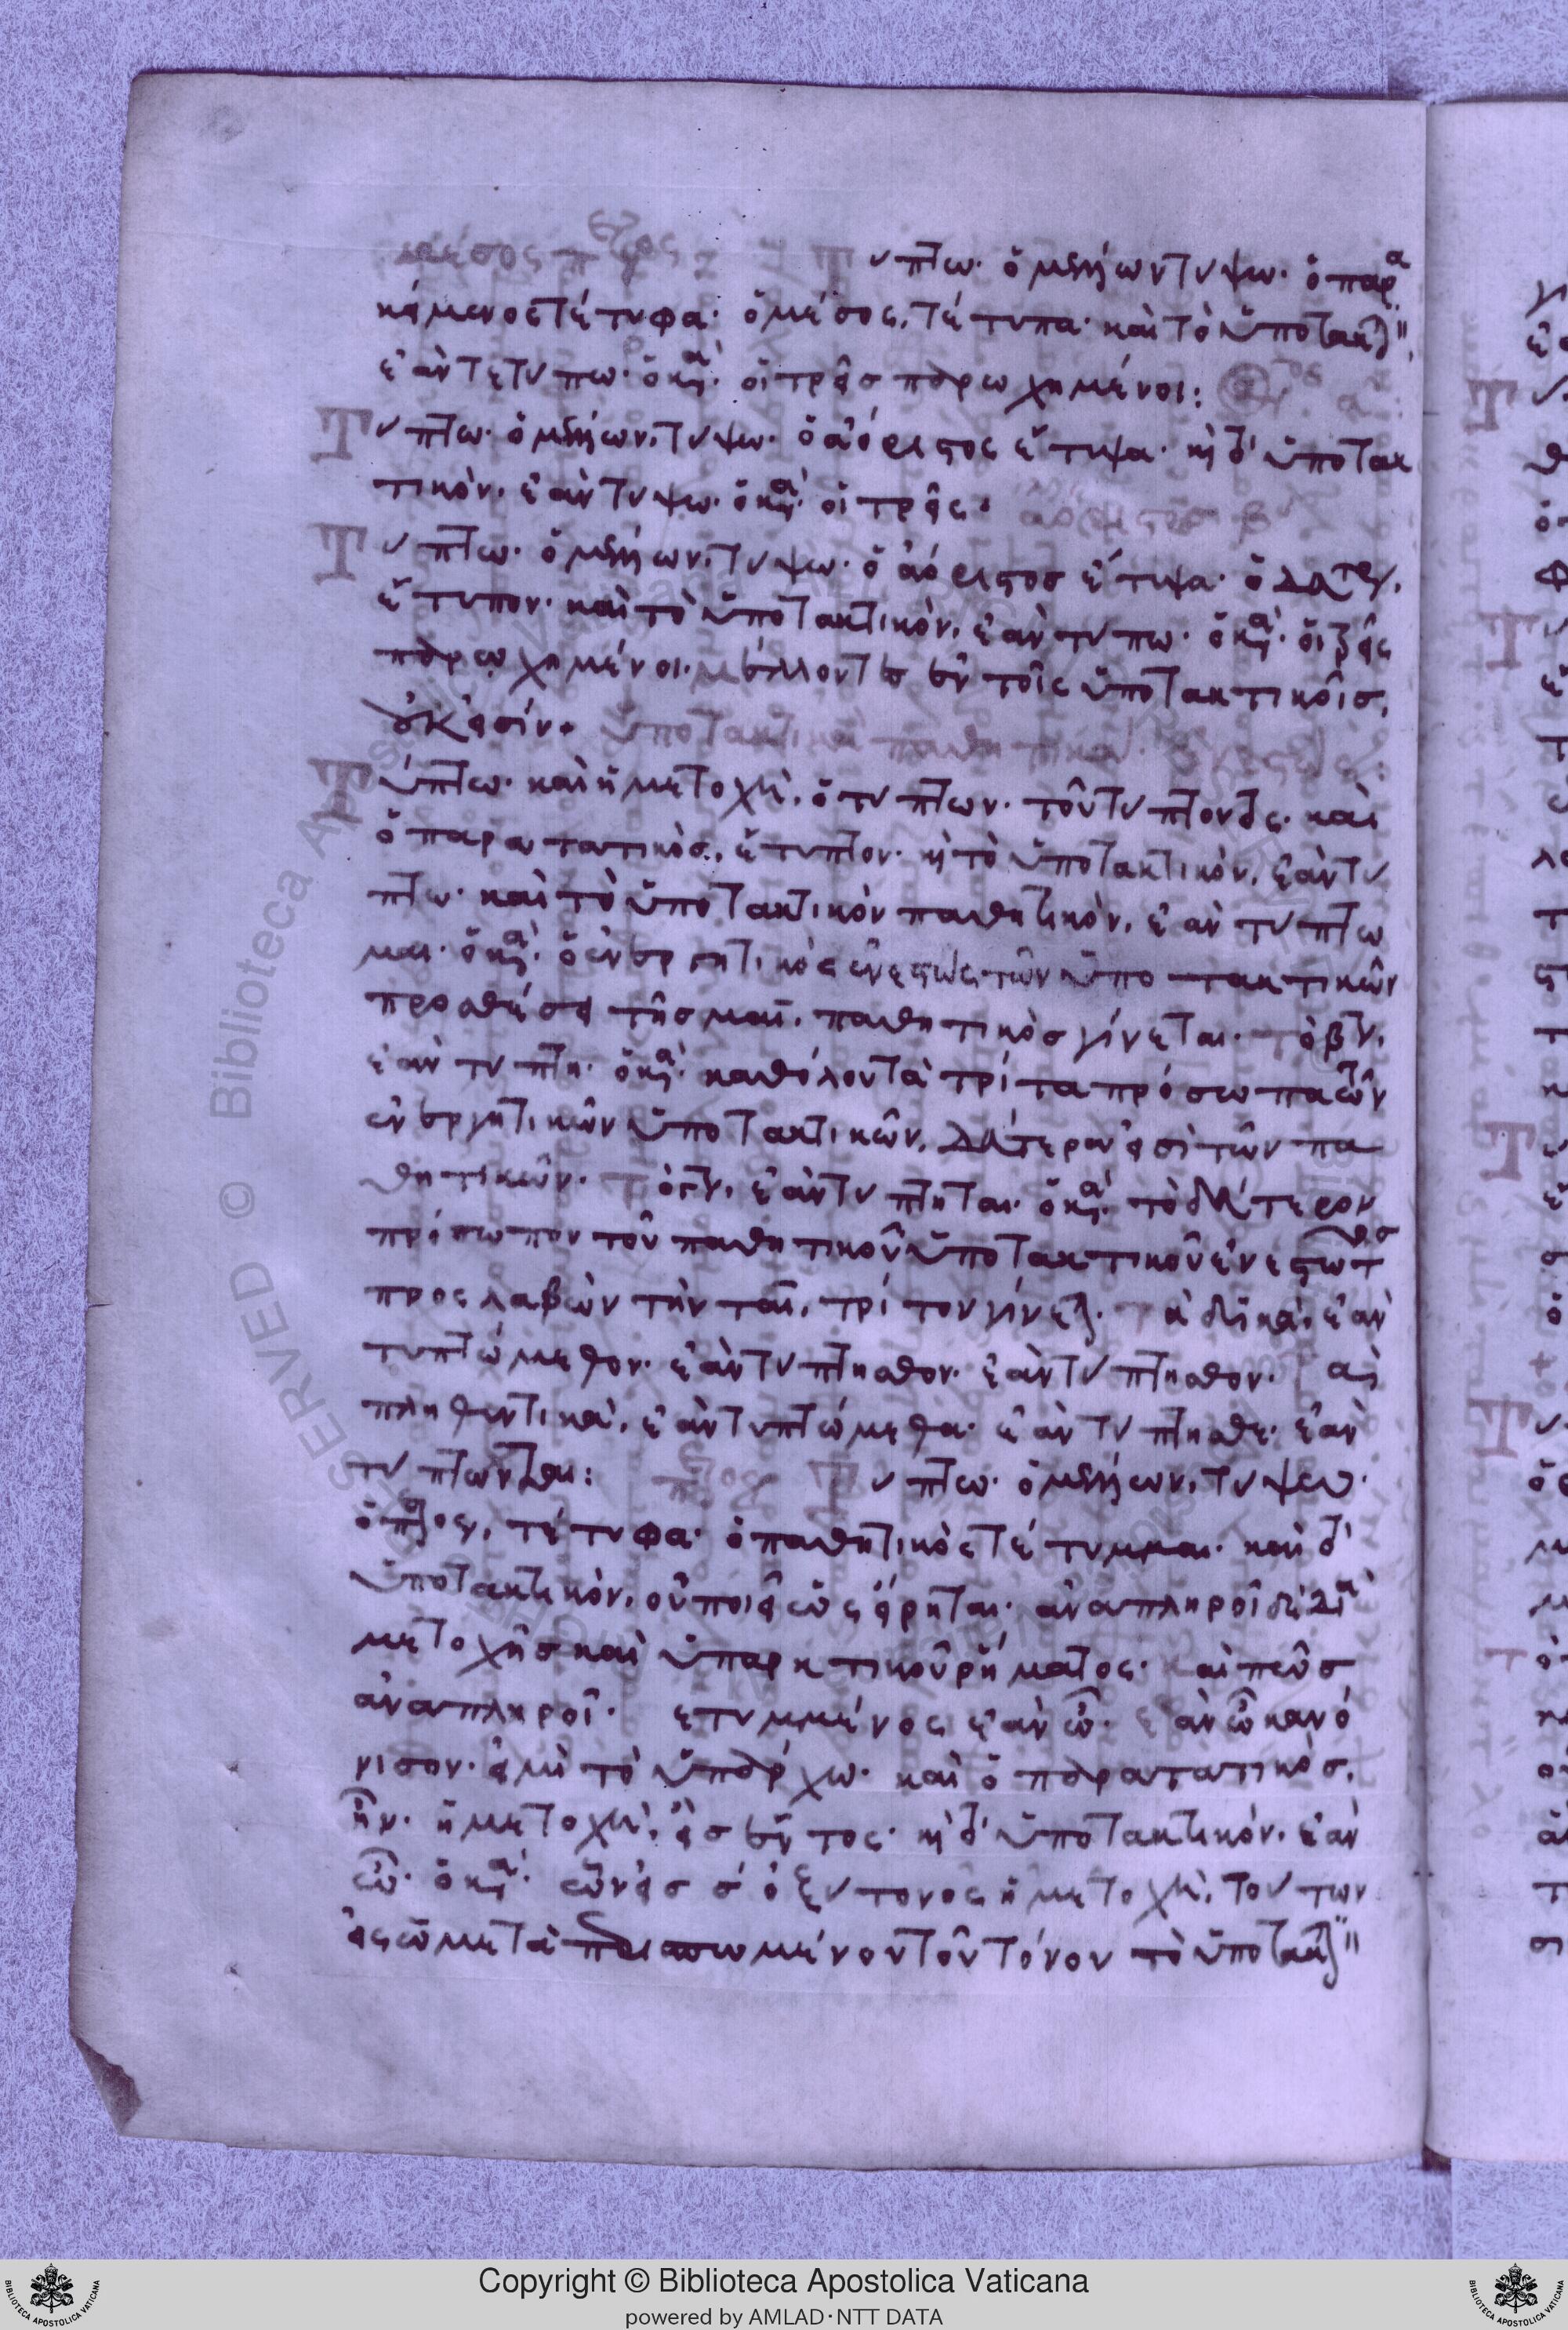 μέσος π Τύπτω· ὁ μέλλων τύψω· ὁ παρα
κείμενος τέτυφα· ὁ μέσος, τέτυπα· καὶ τὸ ὑποτακτ
ἐὰν τετύπω· ὁ κανών· οἱ τρεῖς παρωχημένοι:
Τύπτω· ὁ μέλλων, τύψω· ὁ ἀόριστος ἔτυψα· καὶ τὸ ὑποτακ
τικόν, ἐὰν τύψω· ὁ κανών· οἱ τρεῖς· ἀόριστος β
Τύπτω· ὁ μέλλων, τύψω· ὁ ἀόριστος ἔτυψα· ὁ δεύτερος,
ἔτυπον· καὶ τὸ ὑποτακτικόν, ἐὰν τύπω· ὁ κανών· οἱ τρεῖς
παρωχημένοι· μέλλοντες ἐν τοῖς ὑποτακτικοῖς,
οὐκ εἰσίν· ὑποτακτικὰ παθητικά·
Τύπτω· καὶ ἡ μετοχή, ὁ τύπτων· τοῦ τύπτοντος· καὶ
ὁ παρατατικός, ἔτυπτον· καὶ τὸ ὑποτακτικόν, ἐὰν τύ
πτω· καὶ τὸ ὑποτακτικὸν παθητικόν, ἐὰν τύπτω
μαι· ὁ κανών· ὁ ἐνεργητικὸς ἐνεστὼς τῶν ὑποτακτικῶν
προσθέσει τῆς μαι, παθητικὸς γίνεται· τὸ βον,
ἐὰν τύπτῃ· ὁ κανών· καθόλου τὰ τρίτα πρόσωπα τῶν
ἐνεργητικῶν ὑποτακτικῶν, δεύτερα εἰσὶ τῶν πα
θητικῶν· τὸ γον, ἐὰν τύπτηται· ὁ κανών· τὸ δεύτερον
πρόσωπον τοῦ παθητικοῦ ὑποτακτικοῦ ἐνεστῶτος
προσλαβὼν τὴν ται, τρίτον γίνεται· τὰ δυϊκά, ἐὰν
τυπτώμεθον· ἐὰν τύπτησθον· ἐὰν τύπτησθον· τὰ
πληθυντικά, ἐὰν τυπτώμεθα· ἐὰν τύπτησθε· ἐὰν
τύπτωνται: Τύπτω· ὁ μέλλων, τύψω·
ὁ παρακείμενος, τέτυφα· ὁ παθητικὸς τέτυμμαι· καὶ τὸ
ὑποτακτικόν, οὐ ποιεῖ ὡς εἴρηται· ἀναπληροῖ δὲ διὰ
μετοχῆς καὶ ὑπαρκτικοῦ ῥήματος· καὶ πῶς
ἀναπληροῖ· τετυμμένος ἐὰν ὦ· ἐὰν ὦ κανό
νισον· εἰμὶ τὸ ὑπάρχω· καὶ ὁ παρατατικός,
ἦν· ἡ μετοχή, εἲς ἕντος· καὶ τὸ ὑποτακτικόν, ἐὰν
ὦ· ὁ κανών· ὧν εἰς ς ὀξύτονος ἡ μετοχή, τούτων
εἰς ω μετὰ περισπωμένου τοῦ τόνου τὸ ὑποτακτ